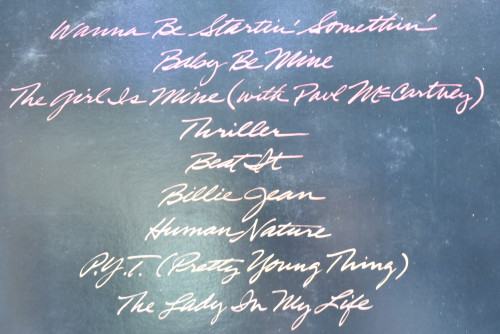 Wanna Be Startin' Somethin'
Baby Be Mine
The Girl Is Mine (with Paul McCartney)
Thriller
Beat It
Billie Jean
Human Nature
P.Y.T. (Pretty Young Thing)
The Lady In My Life